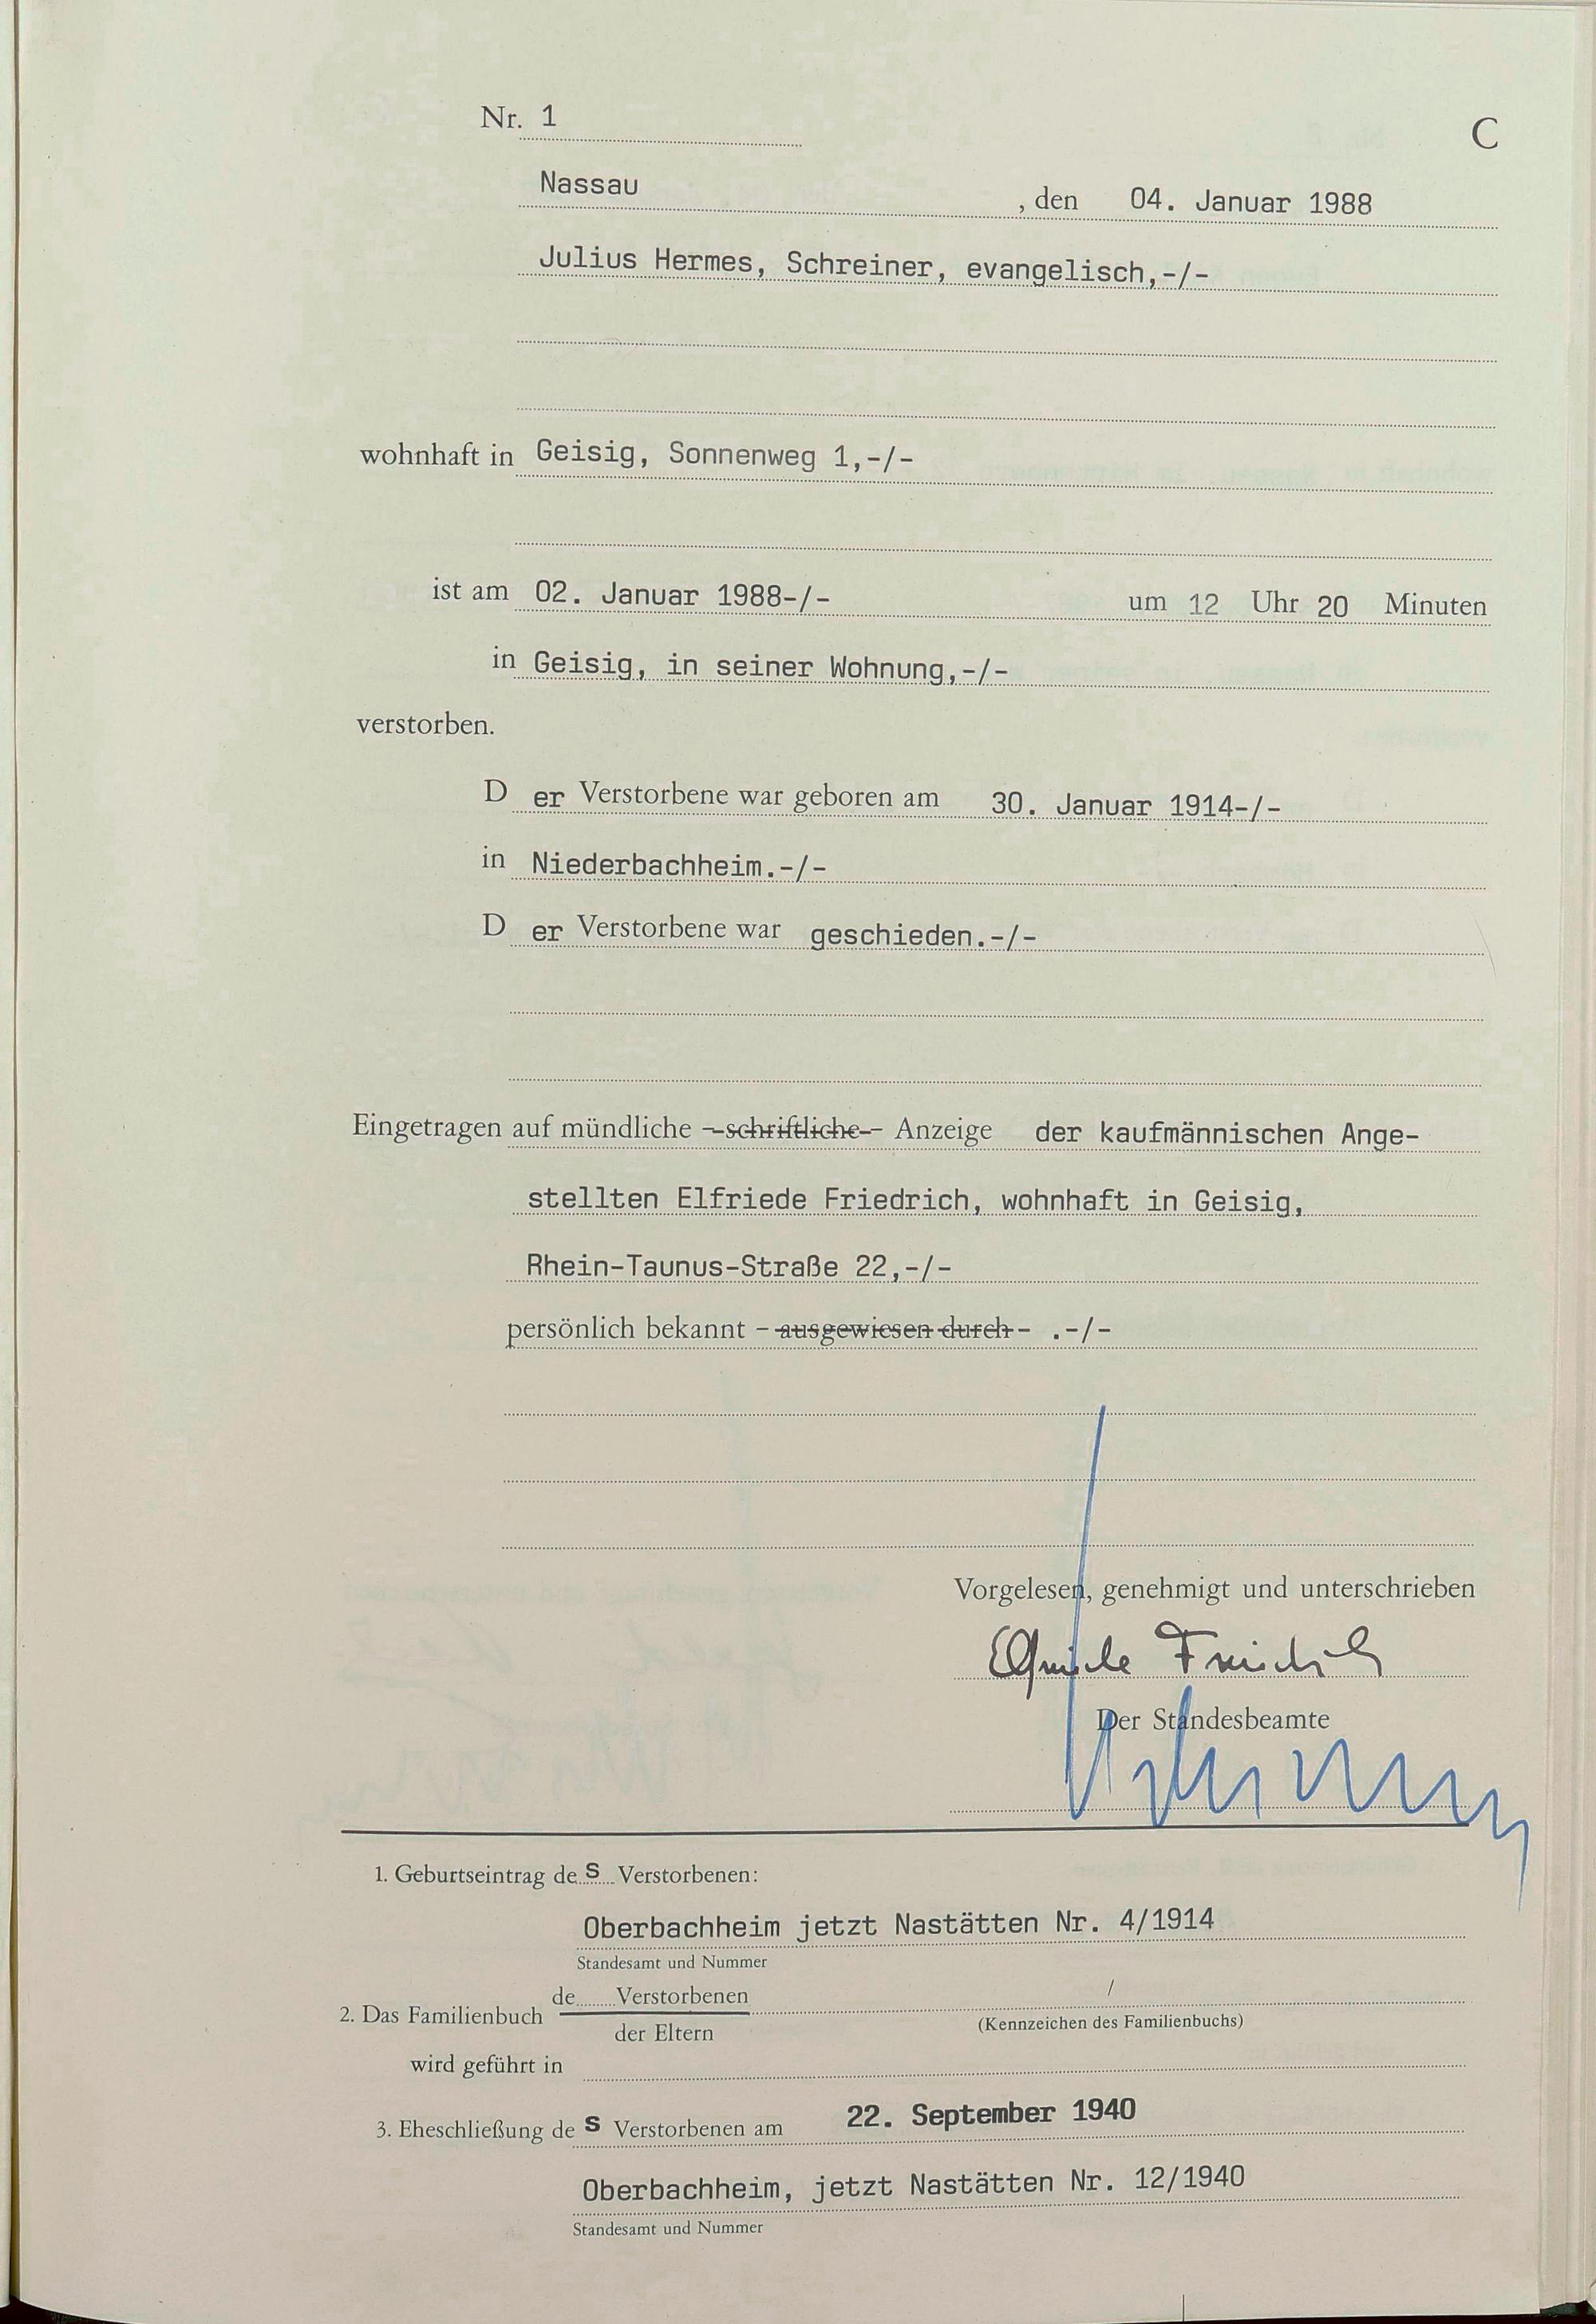 Nr. 1
C
Nassau, den 04. Januar 1988
Julius Hermes, Schreiner, evangelisch,-/-
wohnhaft in Geisig, Sonnenweg 1,-/-
ist am 02. Januar 1988-/- um 12 Uhr 20 Minuten
in Geisig, in seiner Wohnung,-/-
verstorben.
D er Verstorbene war geboren am 30. Januar 1914-/-
in Niederbachheim.-/-
D er Verstorbene war geschieden.-/-
Eingetragen auf mündliche - schriftliche - Anzeige der kaufmännischen Ange-
stellten Elfriede Friedrich, wohnhaft in Geisig,
Rhein-Taunus-Straße 22,-/-
persönlich bekannt - ausgewiesen durch - .-/-
Vorgelesen, genehmigt und unterschrieben
Elfriede Friedrich
Der Standesbeamte
1. Geburtseintrag de s Verstorbenen:
Oberbachheim jetzt Nastätten Nr. 4/1914
Standesamt und Nummer
2. Das Familienbuch de Verstorbenen /
der Eltern (Kennzeichen des Familienbuchs)
wird geführt in
3. Eheschließung de s Verstorbenen am 22. September 1940
Oberbachheim, jetzt Nastätten Nr. 12/1940
Standesamt und Nummer